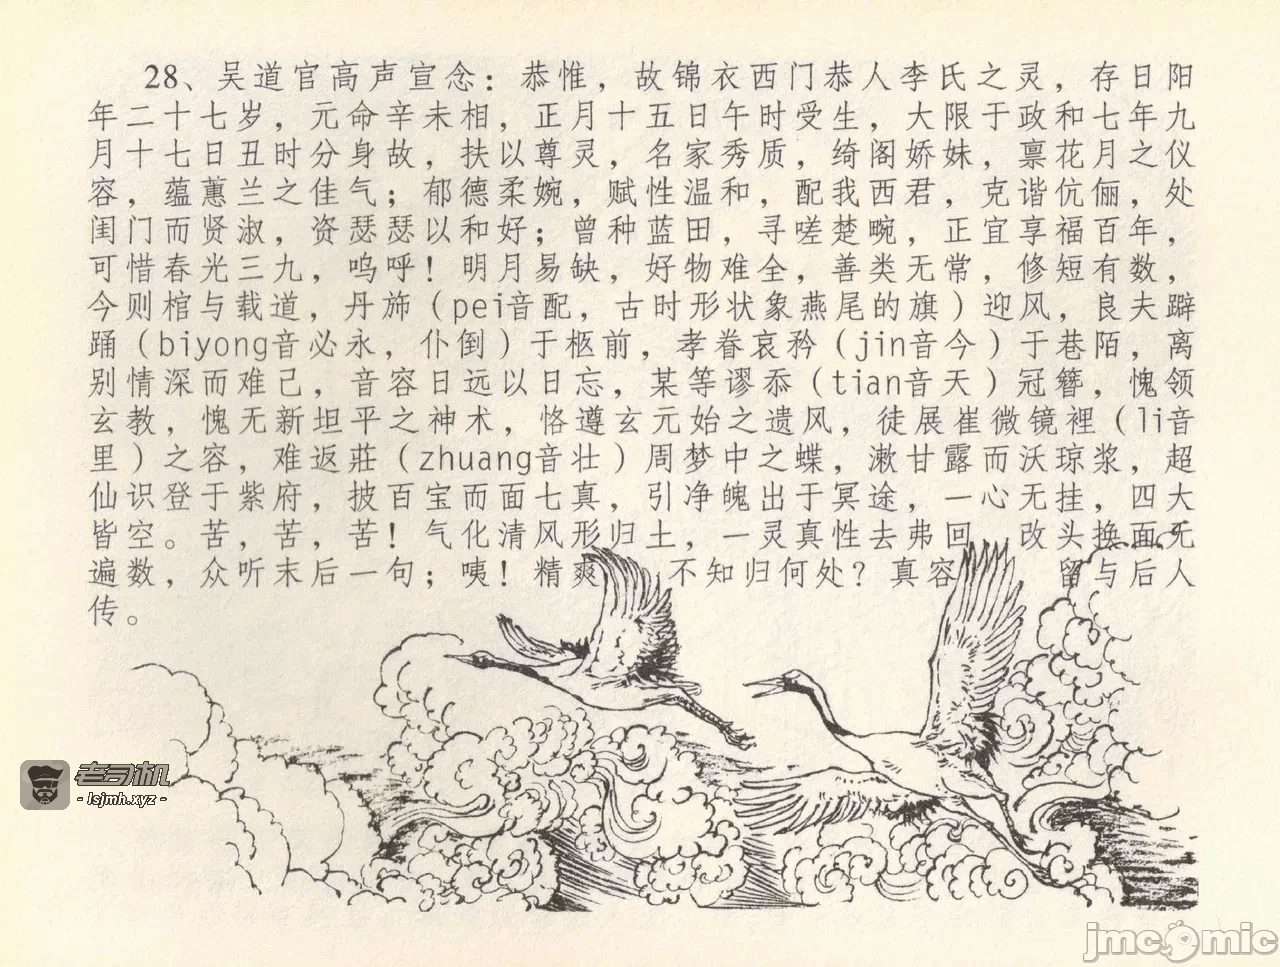 28、吴道官高声宣念：恭惟，故锦衣西门恭人李氏之灵，存日阳
年二十七岁，元命辛未相，正月十五日午时受生，大限于政和七年九
月十七日丑时分身故，扶以尊灵，名家秀质，绮阁娇妹，禀花月之仪
容，蕴蕙兰之佳气；郁德柔婉，赋性温和，配我西君，克谐伉俪，处
闺门而贤淑，资瑟瑟以和好；曾种蓝田，寻嗟楚畹，正宜享福百年，
可惜春光三九，呜呼！明月易缺，好物难全，善类无常，修短有数，
今则棺与载道，丹旆（pei音配，古时形状象燕尾的旗）迎风，良夫躃
踊（biyong音必永，仆倒）于柩前，孝眷哀矜（jin音今）于巷陌，离
别情深而难己，音容日远以日忘，某等谬忝（tian音天）冠簪，愧领
玄教，愧无新坦平之神术，恪遵玄元始之遗风，徒展崔微镜裡（li音
里）之容，难返莊（zhuang音壮）周梦中之蝶，漱甘露而沃琼浆，超
仙识登于紫府，披百宝而面七真，引净魄出于冥途，一心无挂，四大
皆空。苦，苦，苦！气化清风形归土，一灵真性去弗回，改头换面无
遍数，众听末后一句；咦！精爽 不知归何处？真容 留与后人
传。
老司机
- lsjmh.xyz -
jmcomic